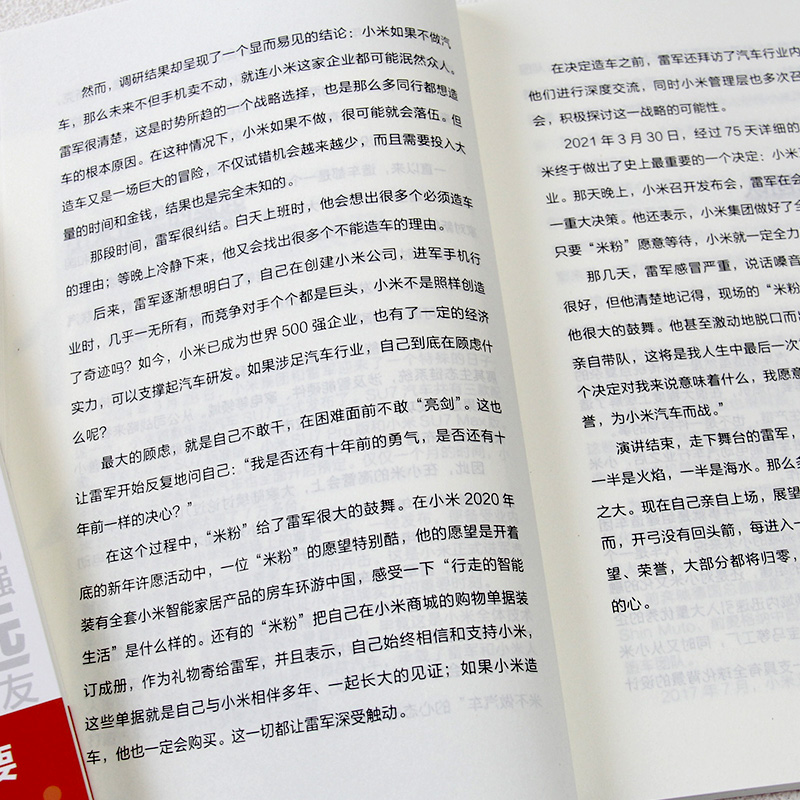 然而，调研结果却呈现了一个显而易见的结论：小米如果不做汽
车，那么未来不但手机卖不动，就连小米这家企业都可能泯然众人。
雷军很清楚，这是时势所趋的一个战略选择，也是那么多同行都想造
车的根本原因。在这种情况下，小米如果不做，很可能就会落伍。但
造车又是一场巨大的冒险，不仅试错机会越来越少，而且需要投入大
量的时间和金钱，结果也是完全未知的。
那段时间，雷军很纠结。白天上班时，他会想出很多个必须造车
的理由；等晚上冷静下来，他又会找出很多个不能造车的理由。
后来，雷军逐渐想明白了，自己在创建小米公司，进军手机行
业时，几乎一无所有，而竞争对手个个都是巨头，小米不是照样创造
了奇迹吗？如今，小米已成为世界 500 强企业，也有了一定的经济
实力，可以支撑起汽车研发。如果涉足汽车行业，自己到底在顾虑什
么呢？
最大的顾虑，就是自己不敢干，在困难面前不敢“亮剑”。这也
让雷军开始反复地问自己：“我是否还有十年前的勇气，是否还有十
年前一样的决心？”
在这个过程中，“米粉”给了雷军很大的鼓舞。在小米 2020 年
底的新年许愿活动中，一位“米粉”的愿望特别酷，他的愿望是开着
装有全套小米智能家居产品的房车环游中国，感受一下“行走的智能
生活”是什么样的。还有的“米粉”把自己在小米商城的购物单据装
订成册，作为礼物寄给雷军，并且表示，自己始终相信和支持小米，
这些单据就是自己与小米相伴多年、一起长大的见证；如果小米造
车，他也一定会购买。这一切都让雷军深受触动。
在决定造车之前，雷军还拜访了汽车行业内
他们进行深度交流，同时小米管理层也多次召
会，积极探讨这一战略的可能性。
2021 年 3 月 30 日，经过 75 天详细的
米终于做出了史上最重要的一个决定：小
业。那天晚上，小米召开发布会，雷军在会
一重大决策。他还表示，小米集团做好了全
只要“米粉”愿意等待，小米就一定全力
那几天，雷军感冒严重，说话嗓音
很好，但他清楚地记得，现场的“米粉
他很大的鼓舞。他甚至激动地脱口而出
亲自带队，这将是我人生中最后一次
个决定对我来说意味着什么，我愿意
誉，为小米汽车而战。”
演讲结束，走下舞台的雷军，
一半是火焰，一半是海水。那么多
之大。现在自己亲自上场，展望
而，开弓没有回头箭，每进入一
望、荣誉，大部分都将归零，
的心。
强
友
要